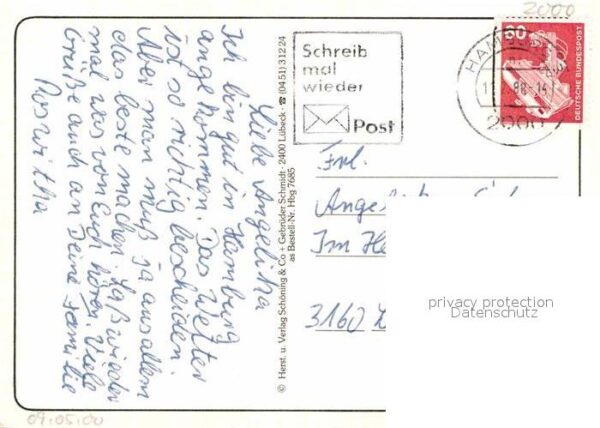 2000
Liebe Angelika
Ich bin gut in Hamburg
angekommen. Das Wetter
ist so richtig bescheiden.
Aber man muß ja aus allem
das beste machen. Laß wieder
mal was von Euch hören. Viele
Grüße auch an Deine Familie
Roswitha
© Herst. u. Verlag Schöning & Co + Gebrüder Schmidt · 2400 Lübeck · ☎ (04 51) 3 12 24
as Bestell-Nr. Hbg 7685
Schreib
mal
wieder
Post
HAM
88-14
2000
60
DEUTSCHE BUNDESPOST
Frl.
Ange
Im
3160
privacy protection
Datenschutz
09.05.00